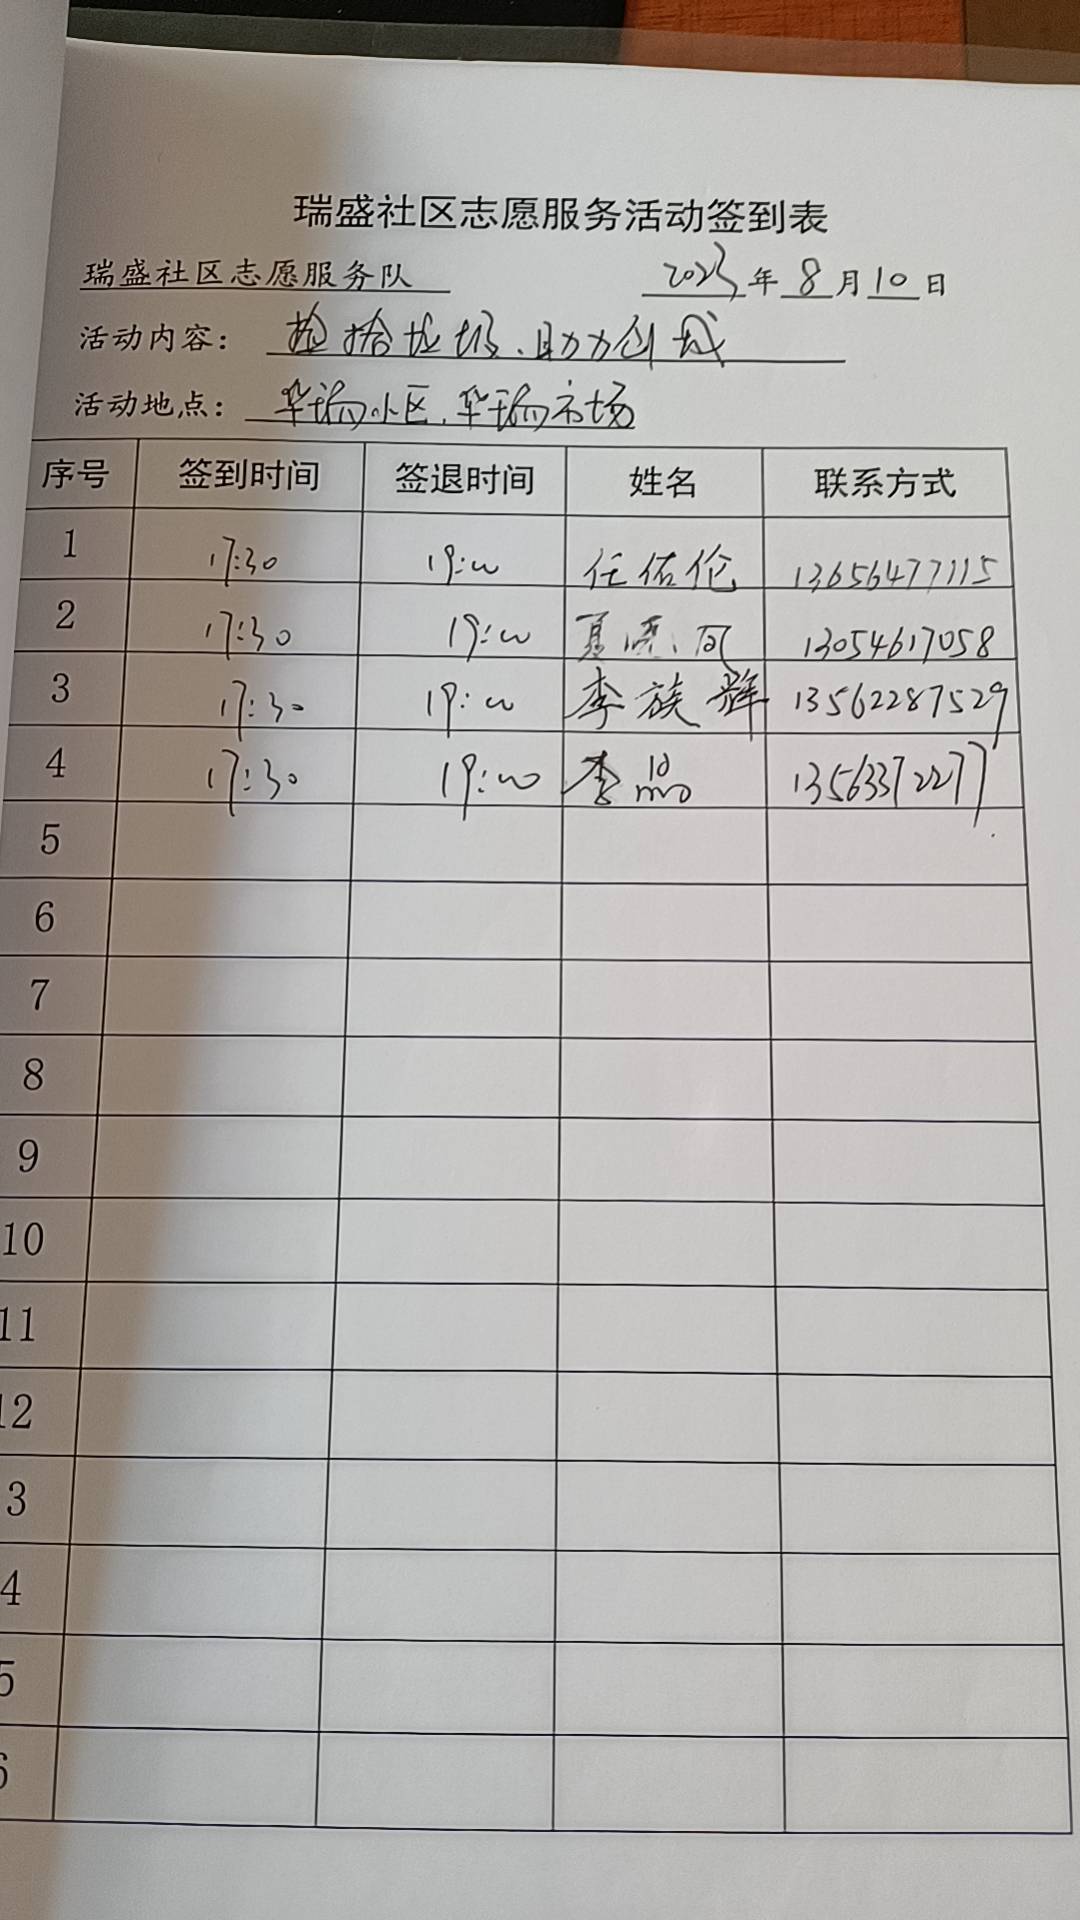 瑞盛社区志愿服务活动签到表
瑞盛社区志愿服务队 2023年8月10日
活动内容：捡拾垃圾、助力创城
活动地点：华瑞小区、华瑞市场
序号 签到时间 签退时间 姓名 联系方式
1 17:30 19:00 任佑伦 13656477115
2 17:30 19:00 夏 13054617058
3 17:30 19:00 李族群 13562287529
4 17:30 19:00 李晶 13563372277
5
6
7
8
9
10
11
12
3
4
5
6